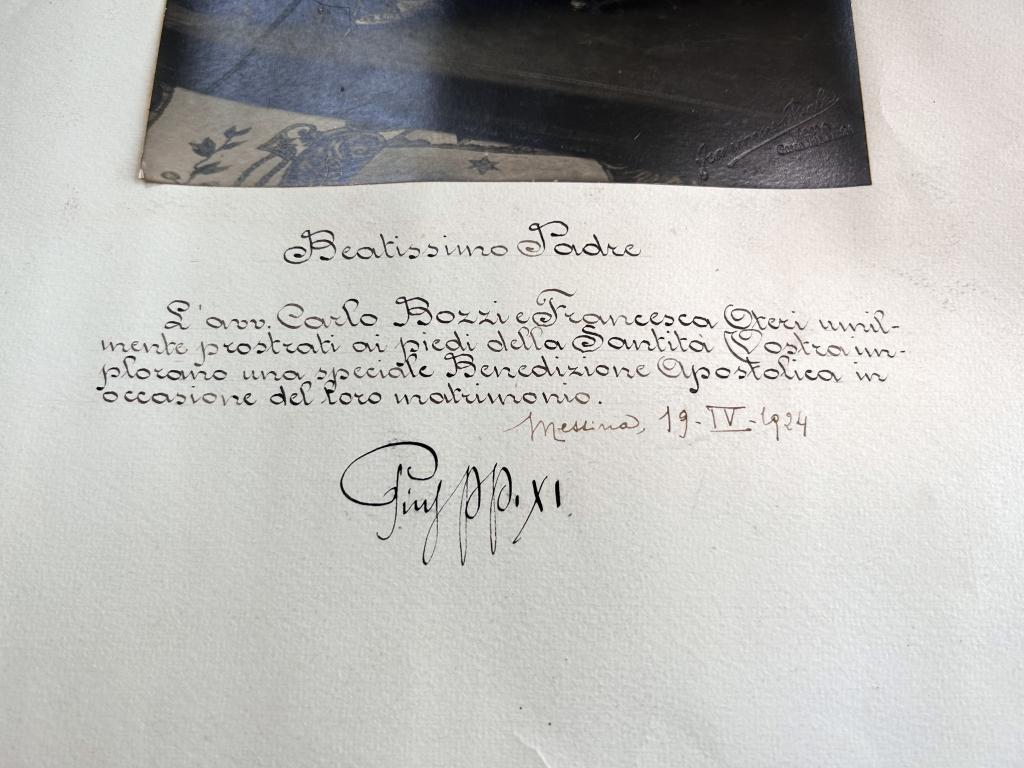 Beatissimo Padre
L'avv. Carlo Bozzi e Francesca Oteri umil-
mente prostrati ai piedi della Santità Vostra im-
plorano una speciale Benedizione Apostolica in
occasione del loro matrimonio.
Messina, 19-IV-1924
Pius pp. XI.